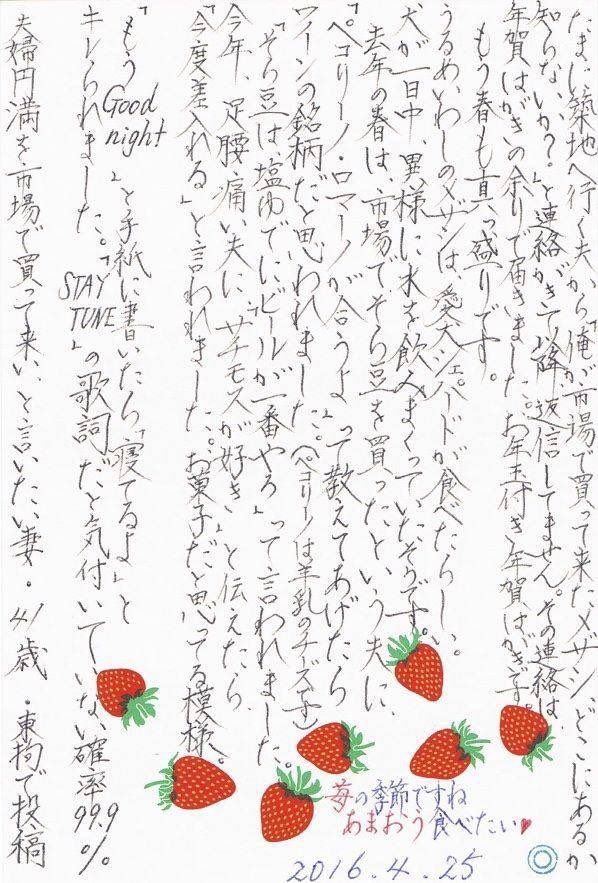 たまに築地へ行く夫から「俺が市場で買って来たメザシ、どこにあるか
知らないか?」と連絡がきて以降返信してません。その連絡は
年賀はがきの余りで届きました。お年玉付き年賀はがき。
もう春も真っ盛りです。
うるめいわしのメザシは、愛犬シェパードが食べたらしい。
犬が一日中、異様に水を飲みまくっていたそうです。
去年の春は、市場でそら豆を買ったという夫に、
「ペコリーノ・ロマーノが合うよ」って教えてあげたら
ワインの銘柄だと思われました。(ペコリーノは羊乳のチーズです)
「そら豆は塩ゆでにビールが一番やろ」って言われました。
今年、足腰痛い夫に、「サチモスが好き」と伝えたら、
「今度差入れる」と言われました。お菓子だと思ってる模様。
「もうGood night」と手紙に書いたら「寝てるよ」と
キレられました。「STAY TUNE」の歌詞だと気付いていない確率99.9%
夫婦円満を市場で買って来い、と言いたい妻・41歳・東拘で投稿
苺の季節ですね
あまおう食べたい♥
2016.4.25